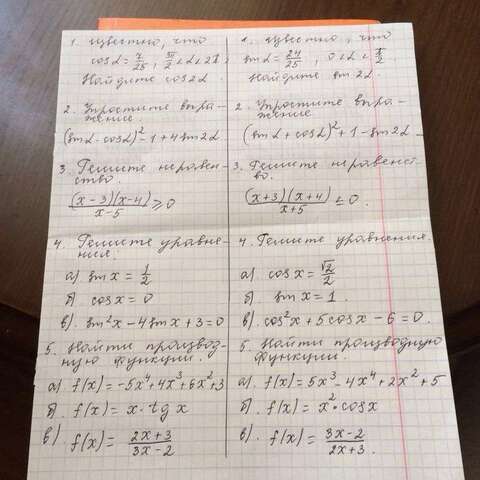 1. Известно, что
cos α = 7/25, 3π/2 < α < 2π,
Найдите cos 2α
2. Упростите выра-
жение
(sin α - cos α)² - 1 + 4 sin 2α
3. Решите неравен-
ство.
(x-3)(x-4)/x-5 ≥ 0
4. Решите уравне-
ния.
а) sin x = 1/2
б) cos x = 0
в). sin²x - 4 sin x + 3 = 0
5. Найти производ-
ную функции.
а) f(x) = -5x⁴ + 4x³ + 6x² + 3
б) f(x) = x · tg x
в) f(x) = 2x+3/3x-2
1. Известно, что
sin α = 24/25, 0 < α < π/2.
Найдите sin 2α.
2. Упростите выра-
жение
(sin α + cos α)² + 1 - sin 2α
3. Решите неравенст-
во.
(x+3)(x+4)/x+5 ≤ 0.
4. Решите уравнения.
а) cos x = √2/2
б) sin x = 1.
в) cos²x + 5 cos x - 6 = 0.
5. Найти производную
функции.
а) f(x) = 5x³ - 4x⁴ + 2x² + 5
б) f(x) = x² · cos x
в). f(x) = 3x-2/2x+3.